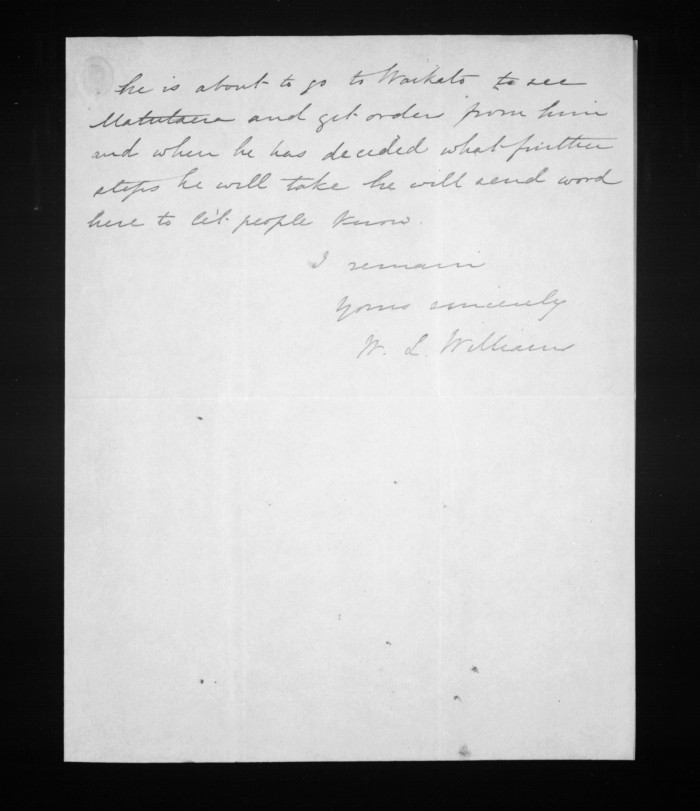 he is about to go to Waikato to see
Matutaera and get orders from him
and when he has decided what further
steps he will take he will send word
here to let people know.
I remain
Yours sincerely
W. L. Williams